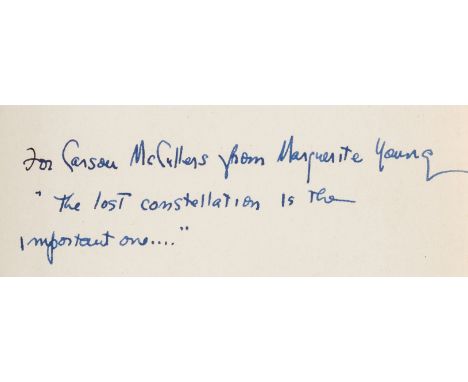 For Carson McCullers from Marguerite Young
" The lost constellation is the
important one...."